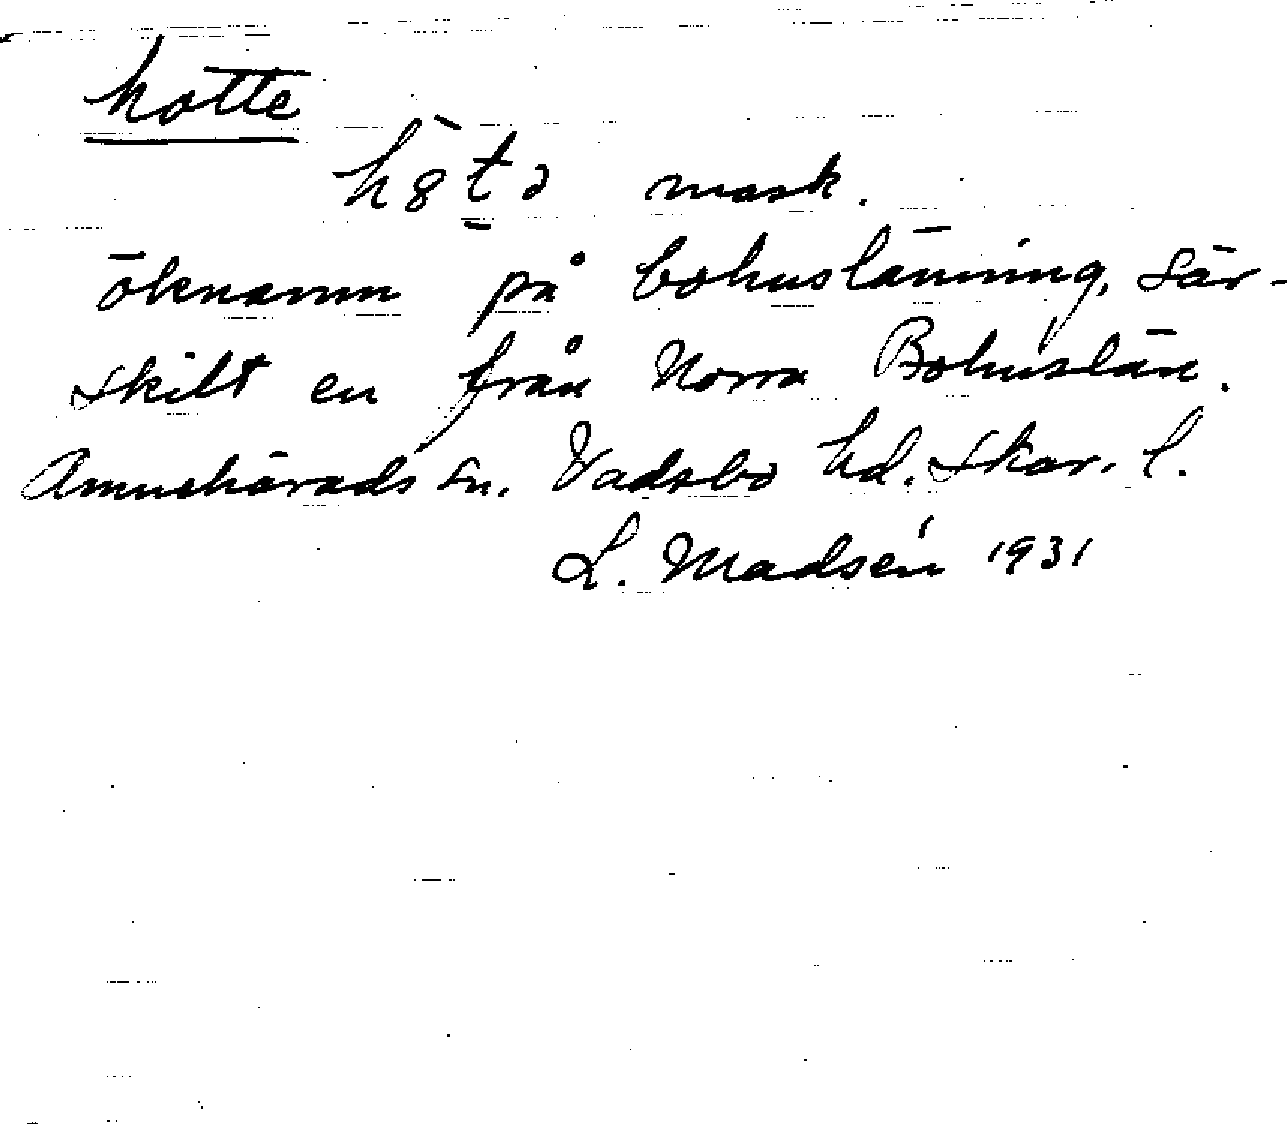 hotte
h8tə mask.
öknamn på bohuslänning, sär-
skilt en från Norra Bohuslän.
Amnehärads sn. Vadsbo hd. Skar. l.
L. Madsén 1931